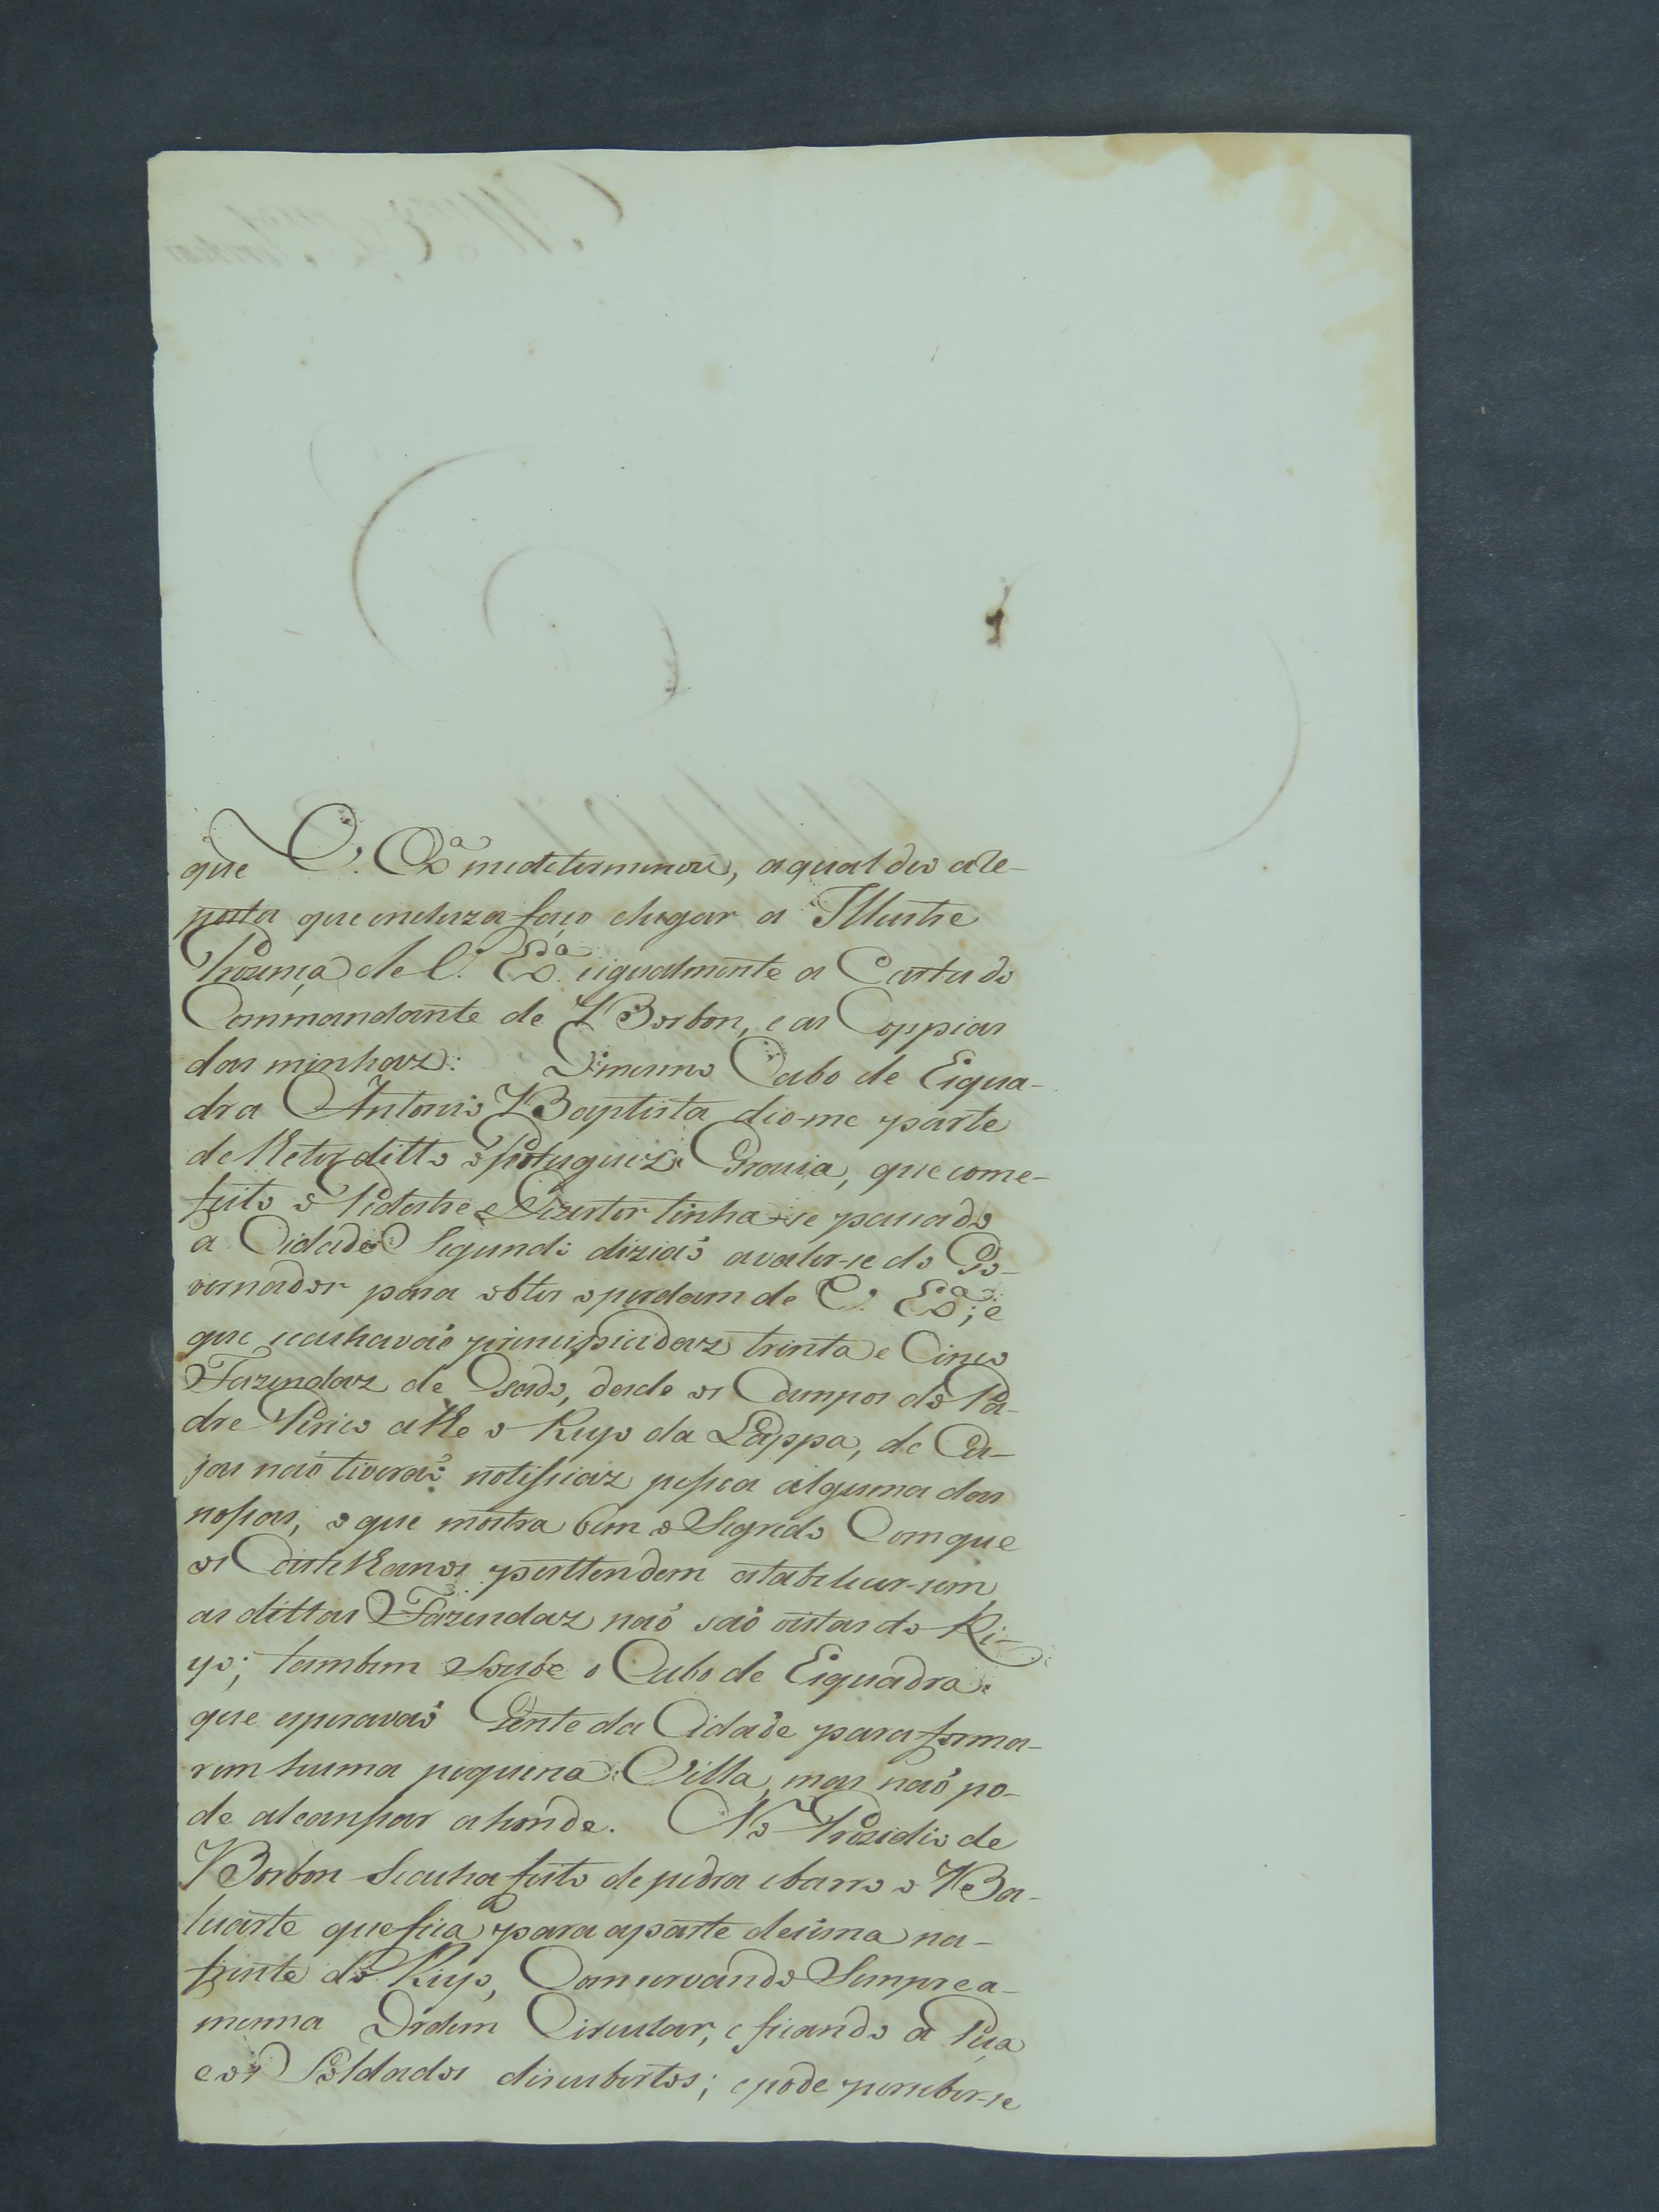 que V. Ex.ª medeterminou, aqual deo a Re-
posta que incluza faço chegar a Illustre
Prezença de V. Ex.ª eigualmente a Carta do
Commandante de Borbon, e as Coppias
das minhaz: O mesmo Cabo de Esqua-
dra Antonio Baptista dio-me parte
de Retor ditto o Portuguez Gouvia, que come-
feito o Pedestre e Dizertor tinha-se passado
a Cidade Segundo diziaõ avaler-se do Go-
vernador para obter operdam de V. Ex.ª; e
que seachavaõ principiadaz trinta e Cinco
Fazendaz de Gado, desde os Campos do Pa-
dre Perico athe o Riyo da Lappa, de Ca-
jas naõ tiveraõ notissiaz pessoa alguma das
nossas, o que mostra bem o Segredo Comque
os Castelhanos perttendem estabelecer-sem
as dittas Fazendaz naõ saõ vistas do Ri-
yo; tambem Soube o Cabo de Esquadra
que esperavaõ Gente da Cidade para forma-
rem huma piquena Villa, mas naõ po-
de alcanssar ahonde. No Prezidio de
Borbon Seacha feito depedra ebarro o Ba-
luarte quefica para aparte desima na-
frente do Riyo, Conservando Sempre a-
mesma Ordem Circular, e ficando a Pessa
eos Soldados discubertos; epode perceber-se